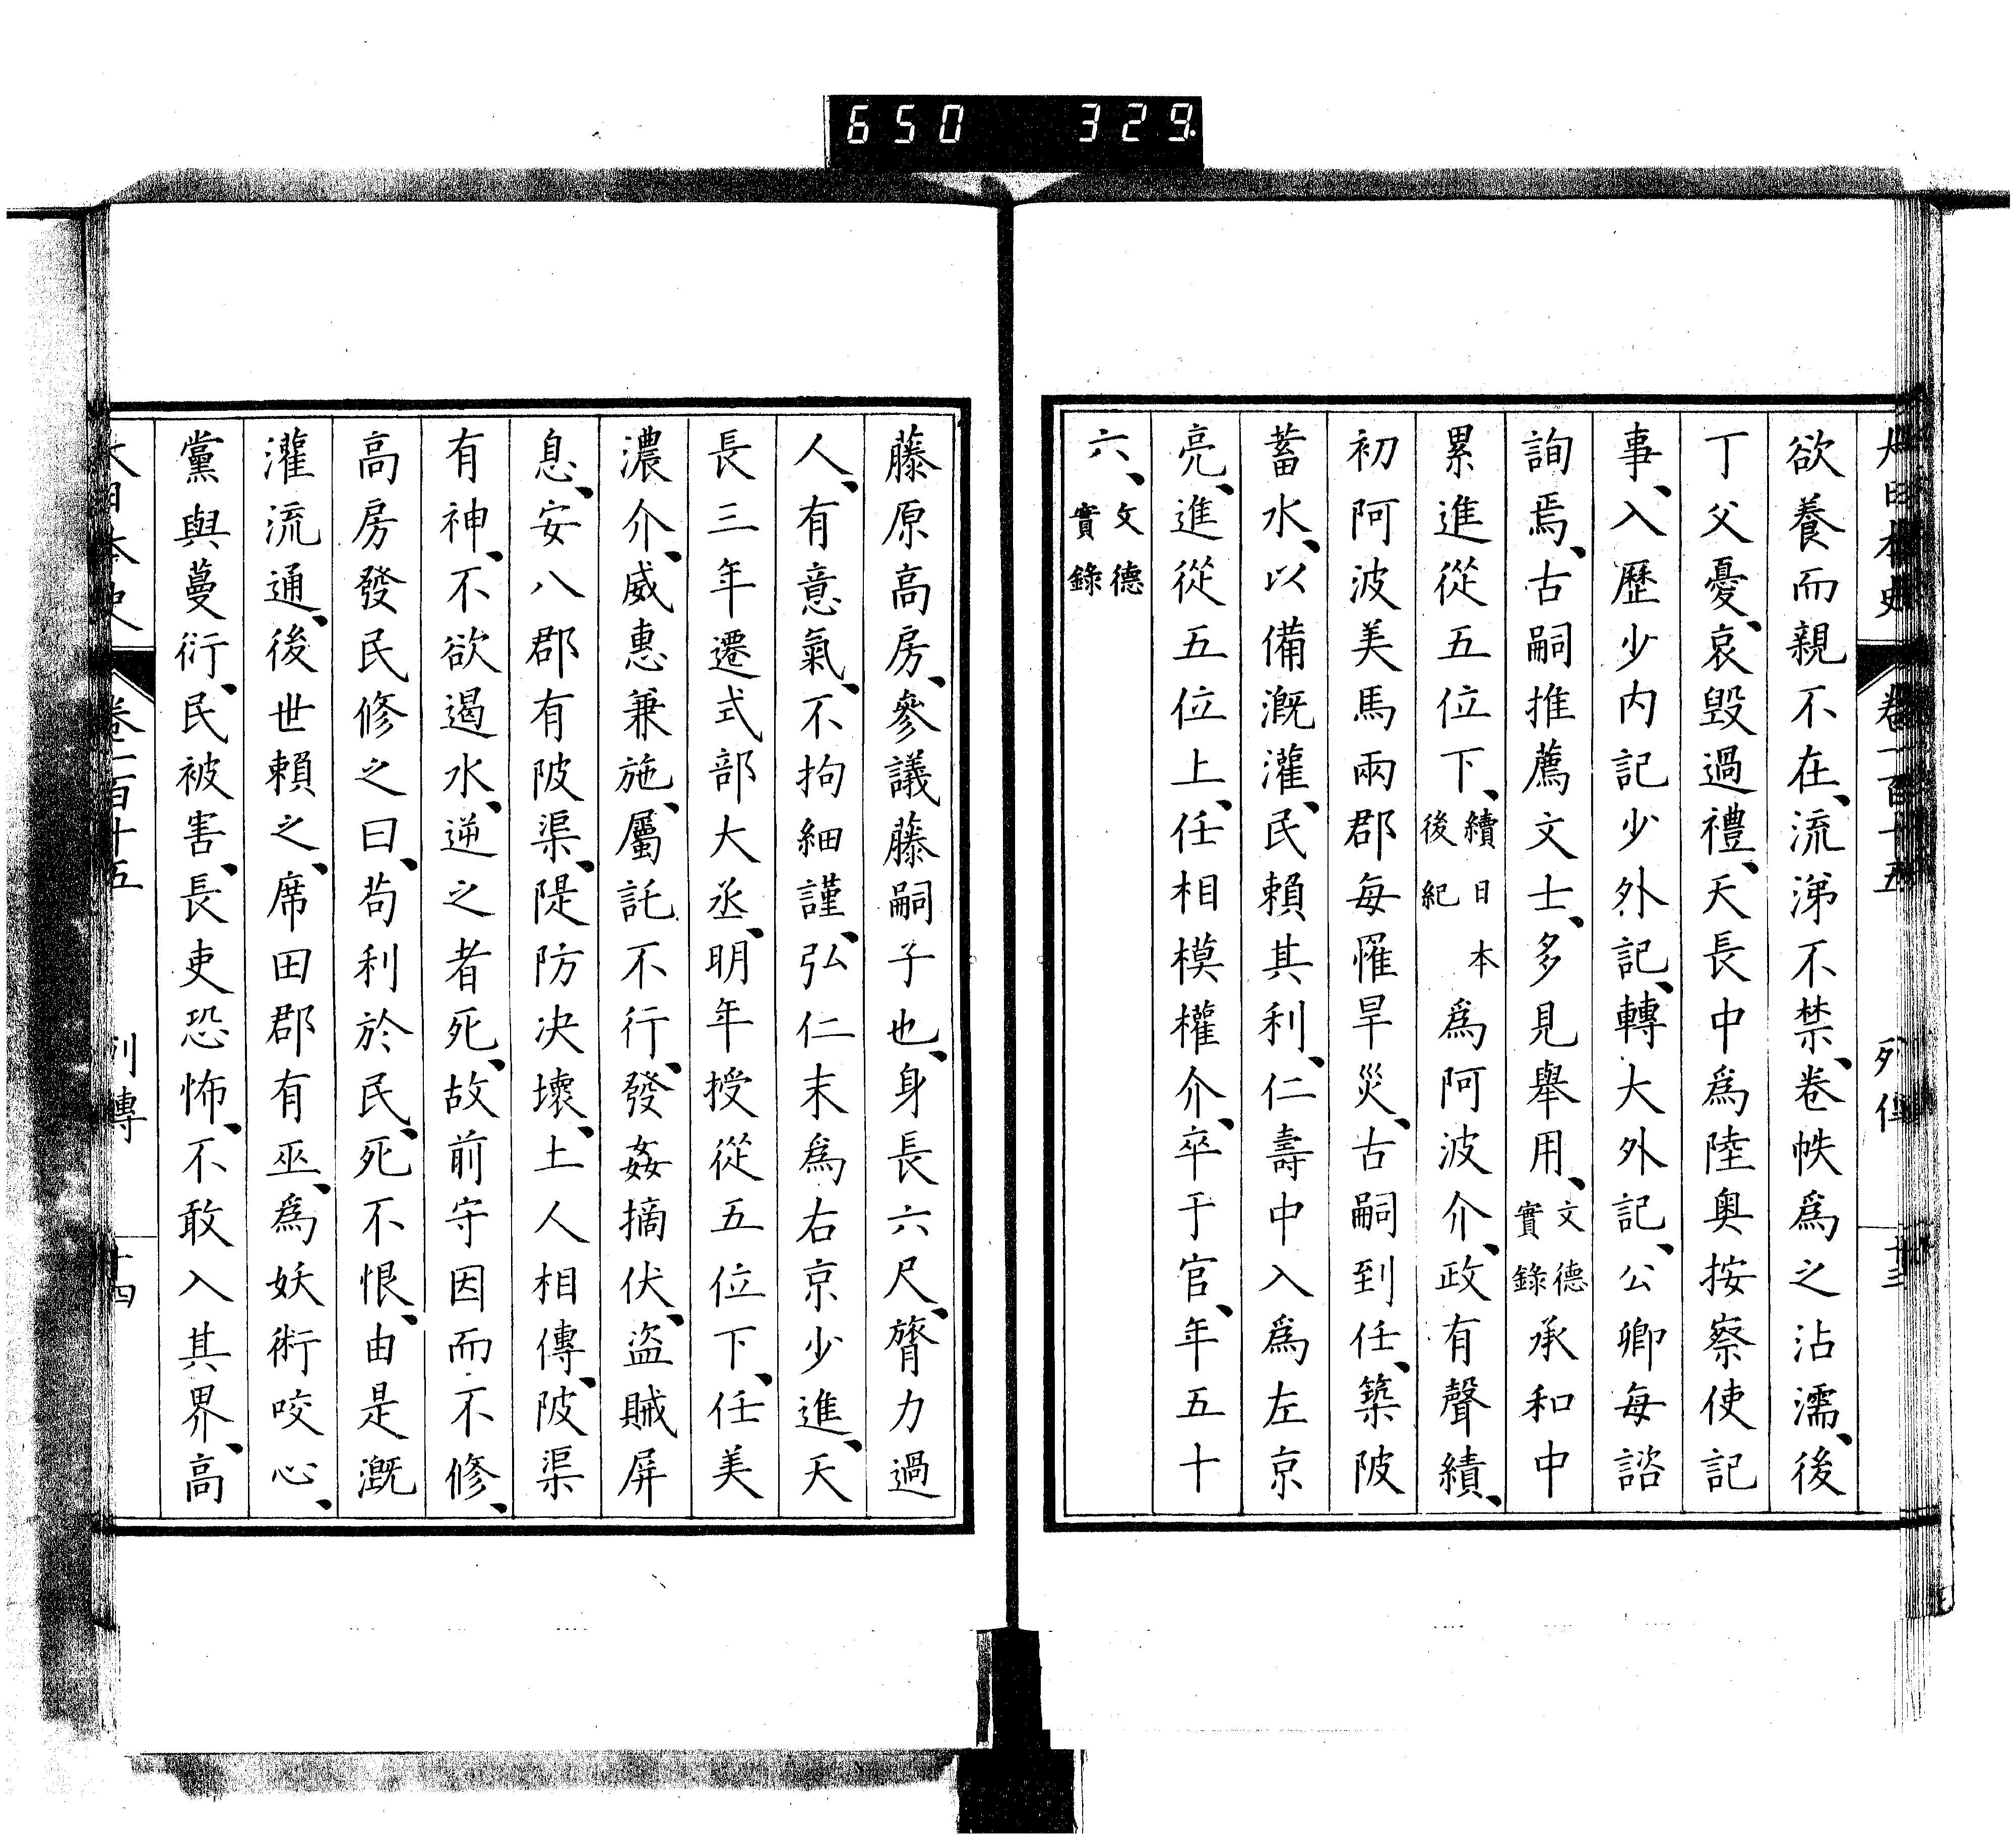 650 329
大日本史 卷一百十五 列傳 十三
欲養而親不在、流涕不禁、卷帙爲之沾濡、後
丁父憂、哀毀過禮、天長中爲陸奧按察使記
事、入歷少内記少外記、轉大外記、公卿每諮
詢焉、古嗣推薦文士、多見舉用、文德實錄承和中
累進從五位下、續日本後紀爲阿波介、政有聲績、
初阿波美馬兩郡每罹旱災、古嗣到任、築陂
蓄水、以備漑灌、民賴其利、仁壽中入爲左京
亮、進從五位上、任相模權介、卒于官、年五十
六、文德實錄
藤原高房、參議藤嗣子也、身長六尺、膂力過
人、有意氣、不拘細謹、弘仁末爲右京少進、天
長三年遷式部大丞、明年授從五位下、任美
濃介、威惠兼施、屬託不行、發姦摘伏、盜賊屏
息、安八郡有陂渠、隄防决壞、土人相傳、陂渠
有神、不欲遏水、逆之者死、故前守因而不修、
高房發民修之曰、苟利於民、死不恨、由是漑
灌流通、後世賴之、席田郡有巫、爲妖術咬心、
黨與蔓衍、民被害、長吏恐怖、不敢入其界、高
大日本史 卷一百十五 列傳 十四